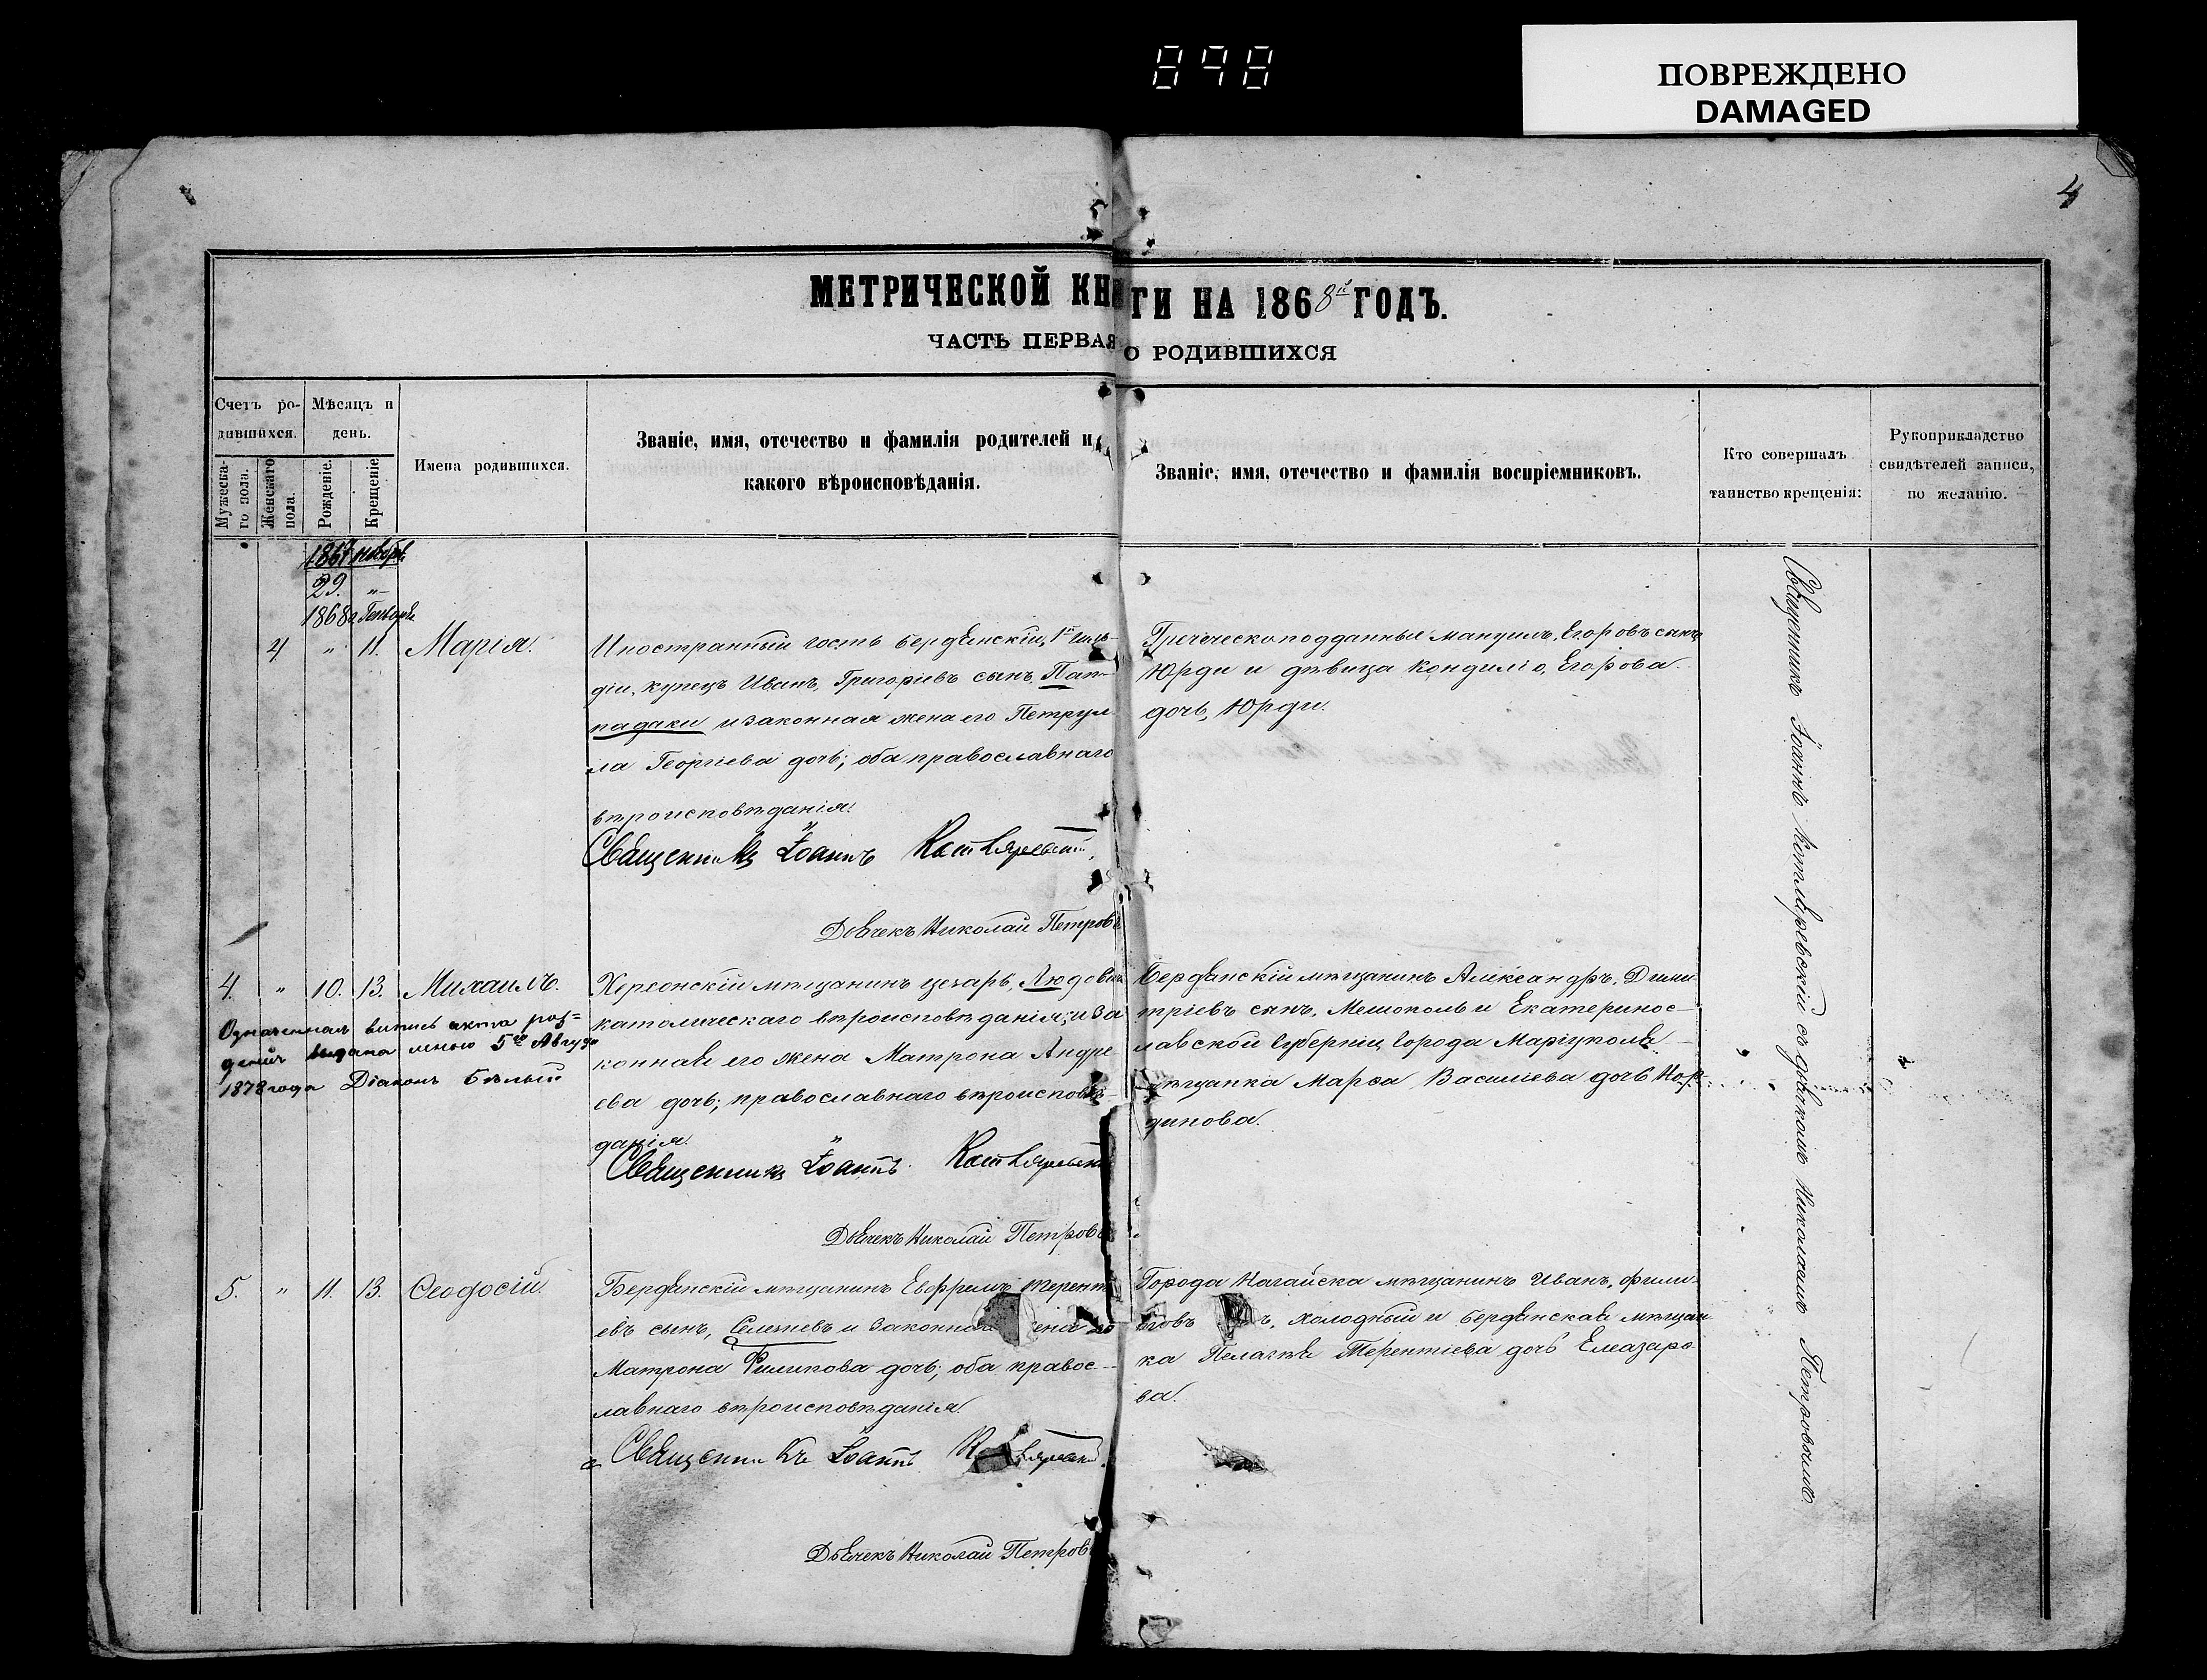 898
ПОВРЕЖДЕНО
DAMAGED
4
МЕТРИЧЕСКОЙ КНИГИ НА 1868й ГОДЪ.
ЧАСТЬ ПЕРВАЯ О РОДИВШИХСЯ
Счетъ ро-
дившихся.
Мужеска-
го пола.
Женскаго
пола.
Мѣсяцъ и
день.
Рожденіе.
Крещеніе.
Имена родившихся.
Званіе, имя, отечество и фамилія родителей и
какого вѣроисповѣданія.
Званіе, имя, отечество и фамилія воспріемниковъ.
Кто совершалъ
таинство крещенія:
Рукоприкладство
свидѣтелей записи,
по желанію.
1867 ноябрь
29. "
1868 Генваря
4 " 11. Марія.
Иностранный гость бердянскій, 1й гиль-
діи, купецъ Иванъ, Григоріевъ сынъ, Пап-
падаки и законная жена его Петрул-
ла Георгіева дочь; оба православнаго
вѣроисповѣданія.
Священникъ Іоаннъ Котляревскій
Дьячекъ Николай Петровъ
Греческоподданные мануилъ, Егоровъ сынъ
Юрди и дѣвица кондиліо, Егорова
дочь, Юрди.
4. " 10. 13. Михаилъ.
Означенная выпись акта рож-
денія выдана мною 5го Августа
1878 года Діаконъ Бѣлый
Херсонскій мѣщанинъ цезарь, Людовик
католическаго вѣроисповѣданія; и за
конная его жена Матрона Андре
ева дочь; православнаго вѣроисповѣ-
данія.
Священникъ Іоаннъ Котляревскій
Дьячекъ Николай Петровъ
Бердянскій мѣщанинъ Александръ, Дими-
тріевъ сынъ, Мешополь и Екатеринос-
лавской Губерніи, города Маріуполя
мѣщанка Марѳа Василіева дочь Нор-
динова.
5. " 11. 13. Ѳеодосій.
Бердянскій мѣщанинъ Евфремъ Терент
евъ сынъ, Селезневъ и законная жена его
Матрона Филипова дочь; оба правос-
лавнаго вѣроисповѣданія.
Священникъ Іоаннъ Котляревскій
Дьячекъ Николай Петровъ
Города Нагайска мѣщанинъ Иванъ, фили-
повъ сынъ, холодный и бердянская мѣщан
ка Пелагія Терентіева дочь Елеазаро
ва.
Священникъ Іоаннъ Котляревскій съ дьячкомъ Николаемъ Петровымъ.